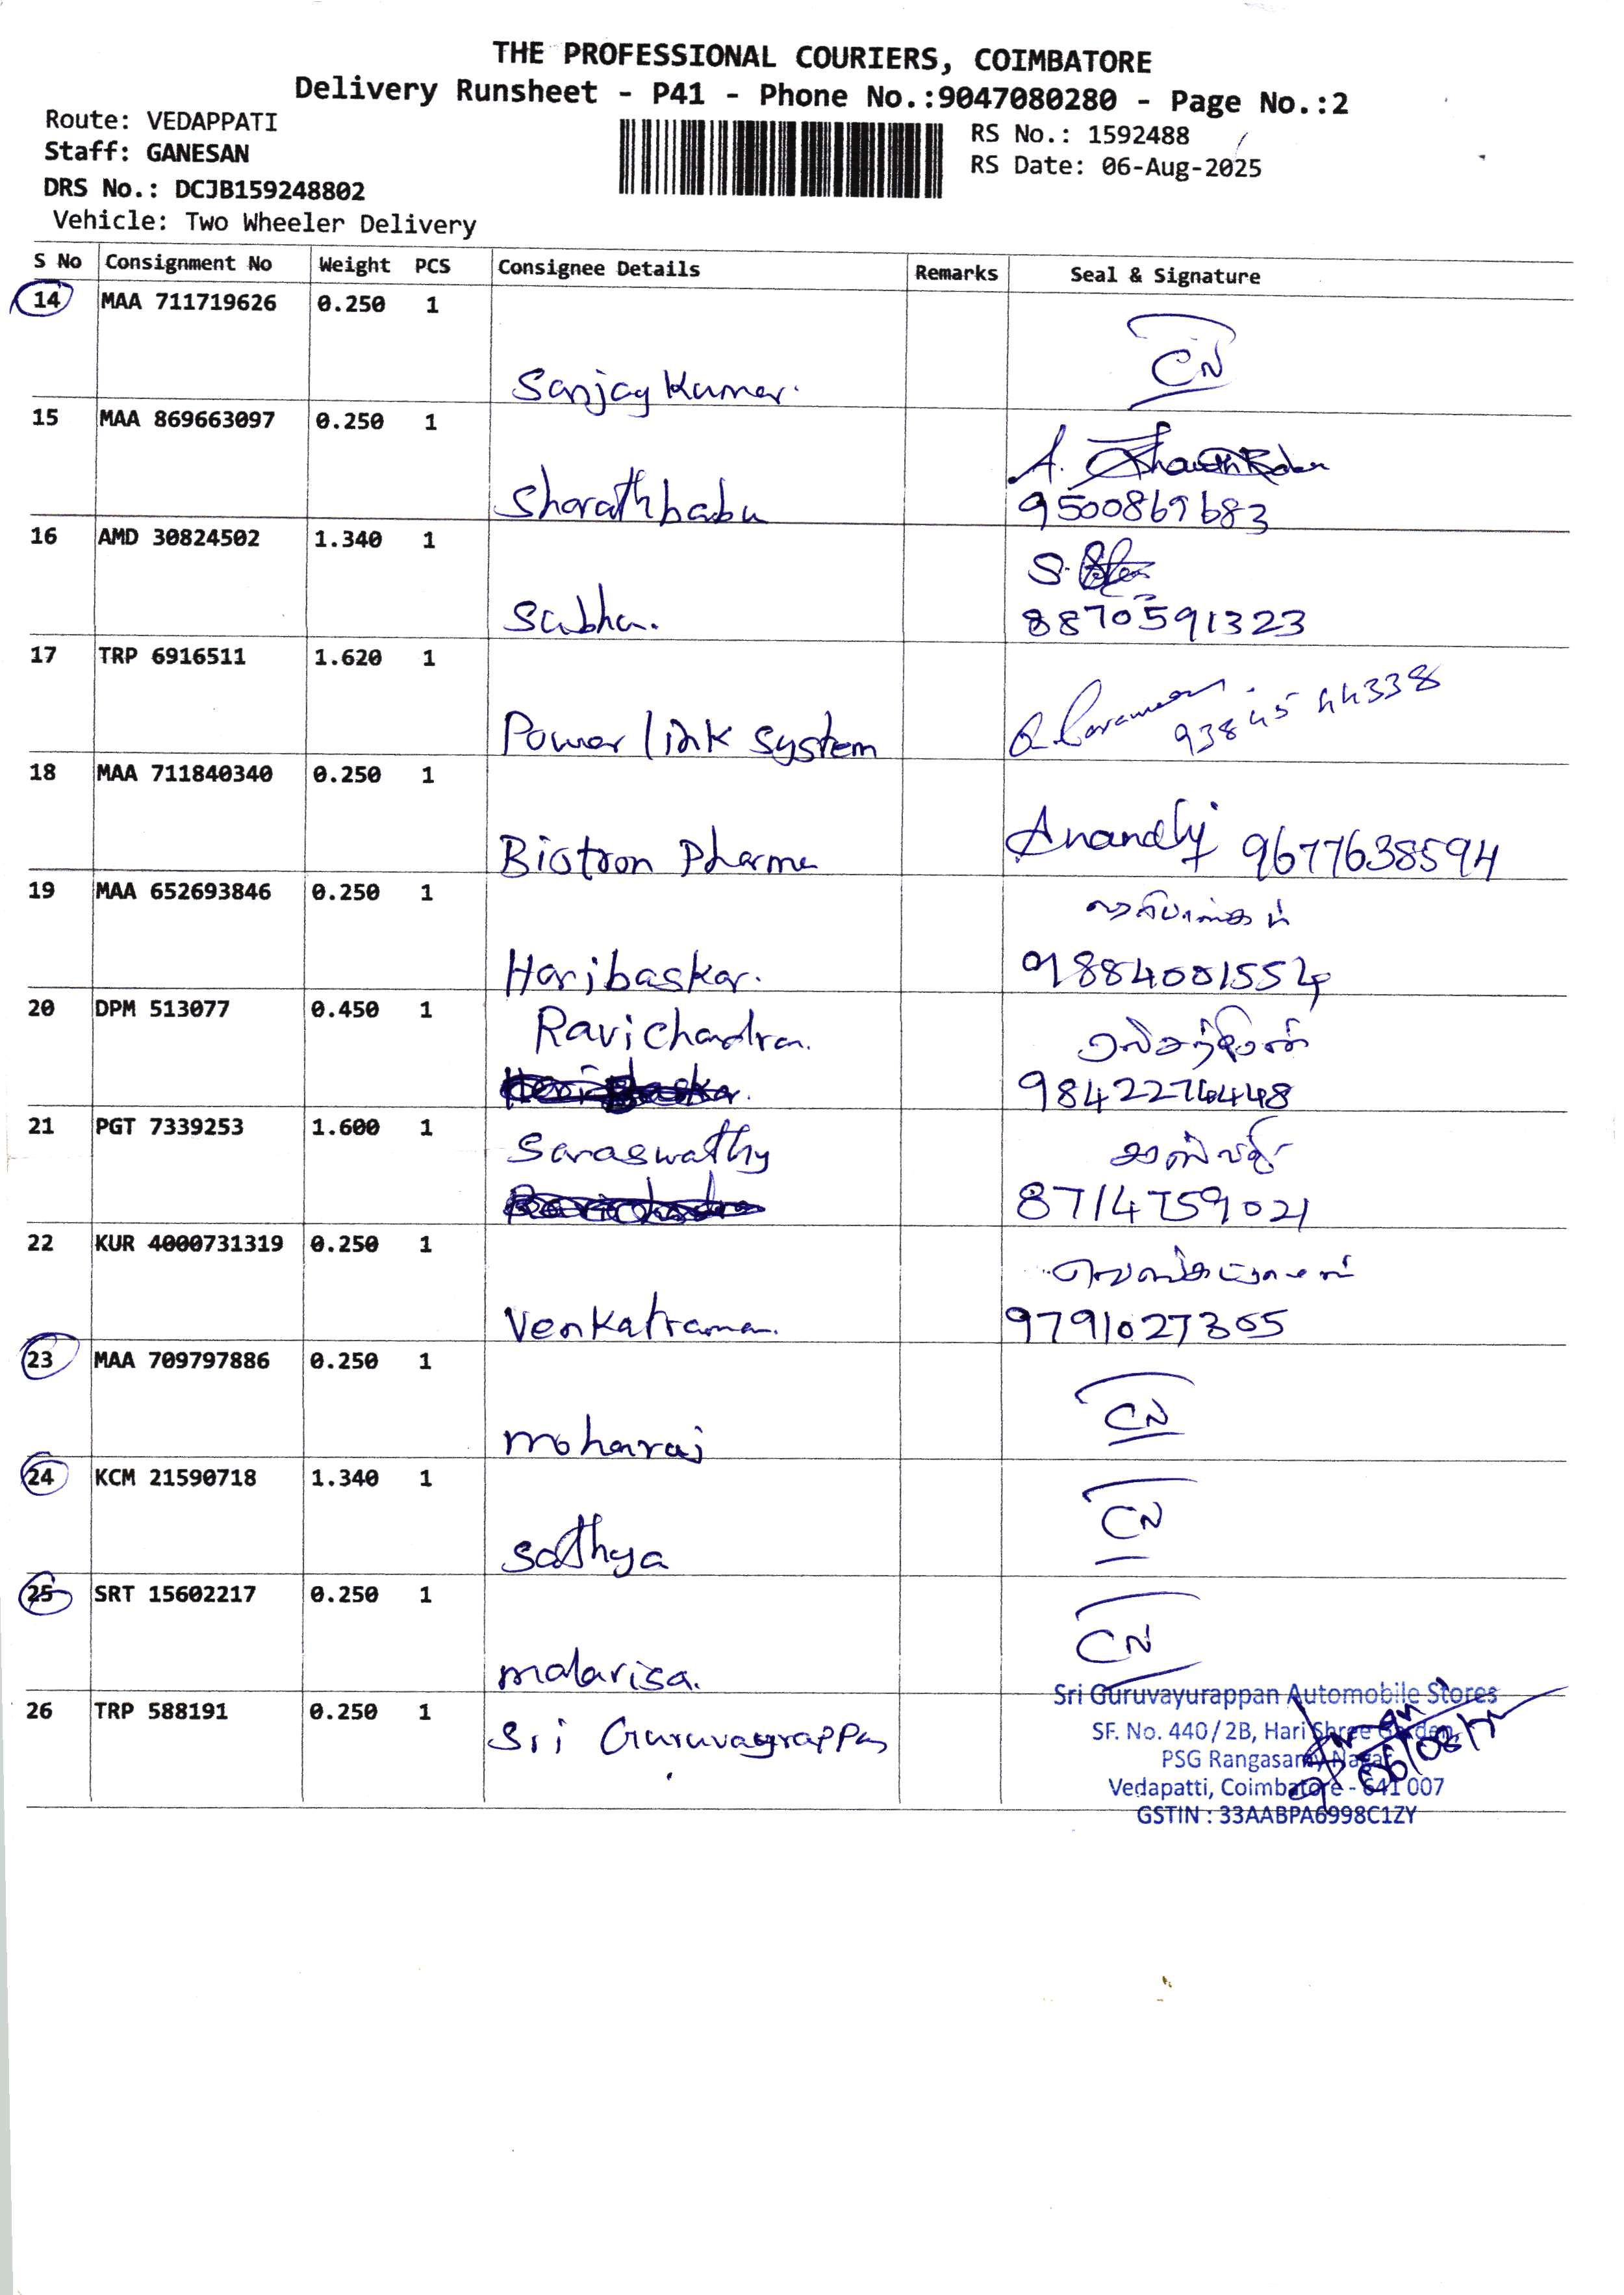 THE PROFESSIONAL COURIERS, COIMBATORE
Delivery Runsheet - P41 - Phone No.:9047080280 - Page No.:2
Route: VEDAPPATI
Staff: GANESAN
DRS No.: DCJB159248802
Vehicle: Two Wheeler Delivery
RS No.: 1592488
RS Date: 06-Aug-2025
S No Consignment No Weight PCS Consignee Details Remarks Seal & Signature
14 MAA 711719626 0.250 1
Sanjay Kumar. CN
15 MAA 869663097 0.250 1
Sharathbabu 9500869683
16 AMD 30824502 1.340 1
Subha. 8870591323
17 TRP 6916511 1.620 1
Power link system 93845 44338
18 MAA 711840340 0.250 1
Biotron Pharma Anandhj 9677638594
19 MAA 652693846 0.250 1
Haribaskar. 9884001554
20 DPM 513077 0.450 1
Ravichandra. ரவிசந்திரன்
21 PGT 7339253 1.600 1
Saraswathy
8714759021
22 KUR 4000731319 0.250 1
Venkatraman. 9791027365
23 MAA 709797886 0.250 1
moharaj CN
24 KCM 21590718 1.340 1
Sathya CN
25 SRT 15602217 0.250 1
malarisa. CN
26 TRP 588191 0.250 1
Sri Guruvayrappan
Sri Guruvayurappan Automobile Stores
SF. No. 440/2B, Hari Shree Garden,
PSG Rangasamy Nagar
Vedapatti, Coimbatore - 641 007
GSTIN : 33AABPA6998C1ZY